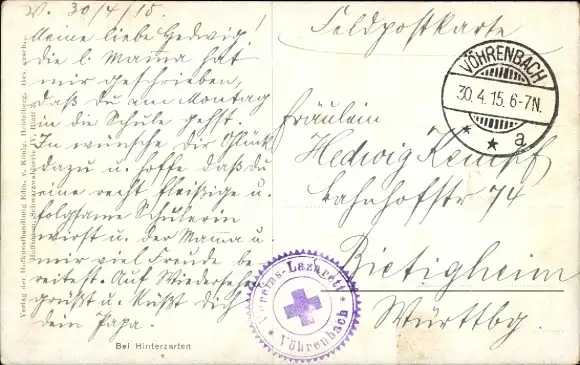 V. 30/4/15.
Meine liebe Hedwig!
die l. Mama hat
mir geschrieben,
daß du am Montag
in die Schule gehst.
Ich wünsche dir Glück
dazu u. hoffe daß du
eine recht fleißige u.
folgsame Schülerin
wirst u. der Mama u.
mir viel Freude be
reitest. Auf Wiedersehen
grüßt u. küßt dich
dein Papa.
Bei Hinterzarten
Verlag der Hofkunsthandlung Edm. v. König, Heidelberg. Ges. gesch.
Hoffmann, Schwarzwaldserie IV, Blatt
Feldpostkarte
VÖHRENBACH
30.4.15.6-7N.
* * a
Fräulein
Hedwig Kempf
Bahnhofstr 74
Bietigheim
Württbg
Vereins-Lazarett
* Vöhrenbach *